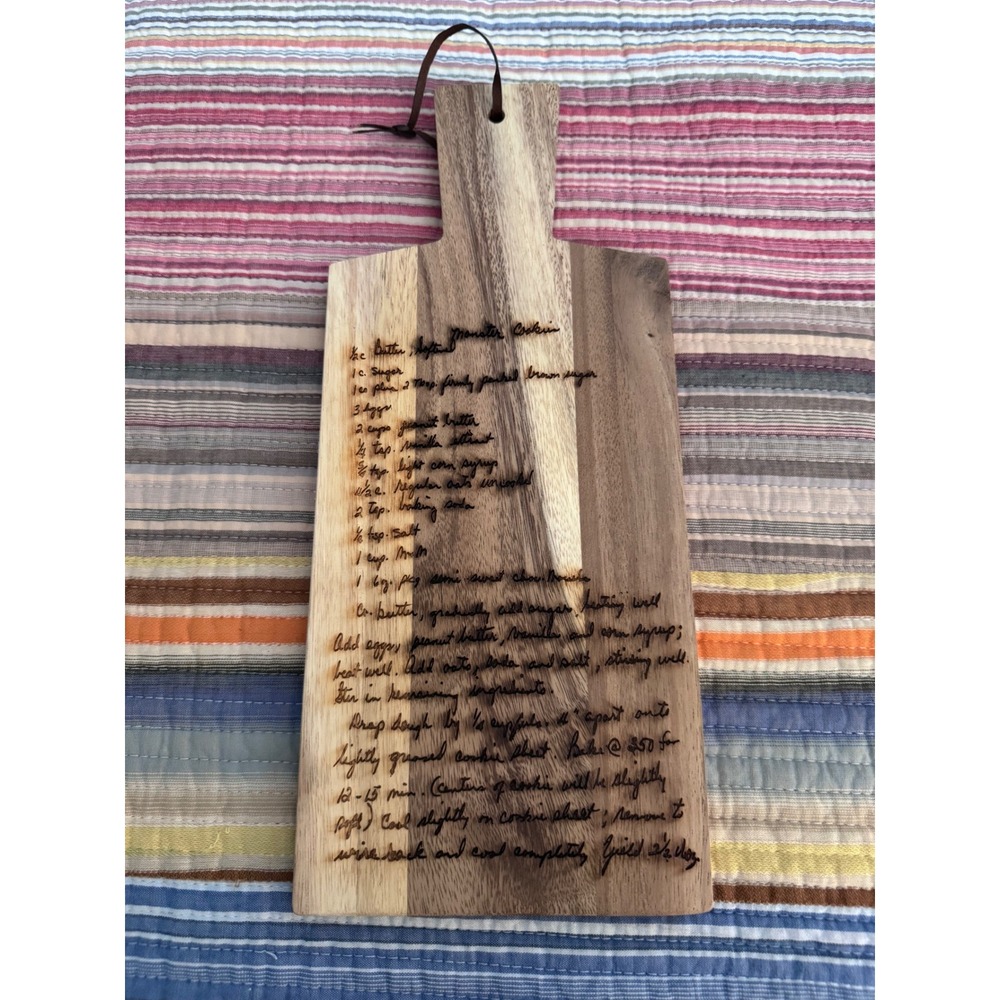 Monster Cookies
½ c butter, softened
1 c. sugar
1 c. plus 2 Tbsp firmly packed brown sugar
3 eggs
2 cups peanut butter
¼ tsp. vanilla extract
tsp light corn syrup
½ c. regular oats uncooked
2 tsp. baking soda
tsp. salt
1 cup. M+M
1 6 oz. pkg semi sweet choc. morsels
butter, gradually add sugar. beating well
Add eggs, peanut butter, vanilla and corn syrup;
beat well. Add oats, soda and salt, stirring well.
Stir in remaining ingredients.
Drop dough by cupfuls 4" apart onto
lightly greased cookie sheet. Bake @ 350 for
12-15 min. (centers of cookie will be slightly
soft) Cool slightly on cookie sheet; remove to
wire rack and cool completely Yield 2½ doz